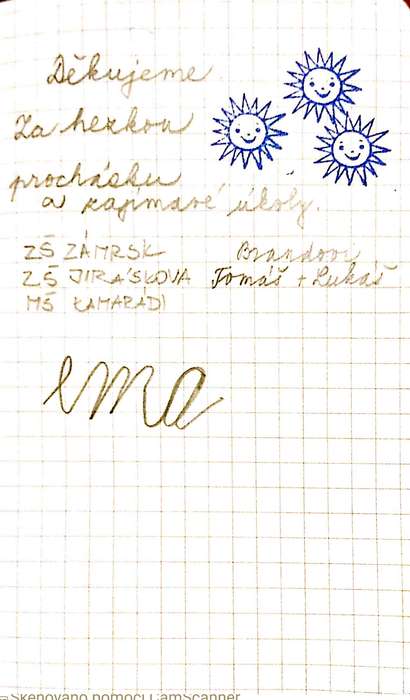 Děkujeme
Za hezkou
procházku
a zajímavé úkoly.
ZŠ ZÁMRSK
ZŠ JIRÁSKOVA
MŠ KAMARÁDI
Brandovi
Tomáš + Lukáš
ema
Skenováno pomocí CamScanner